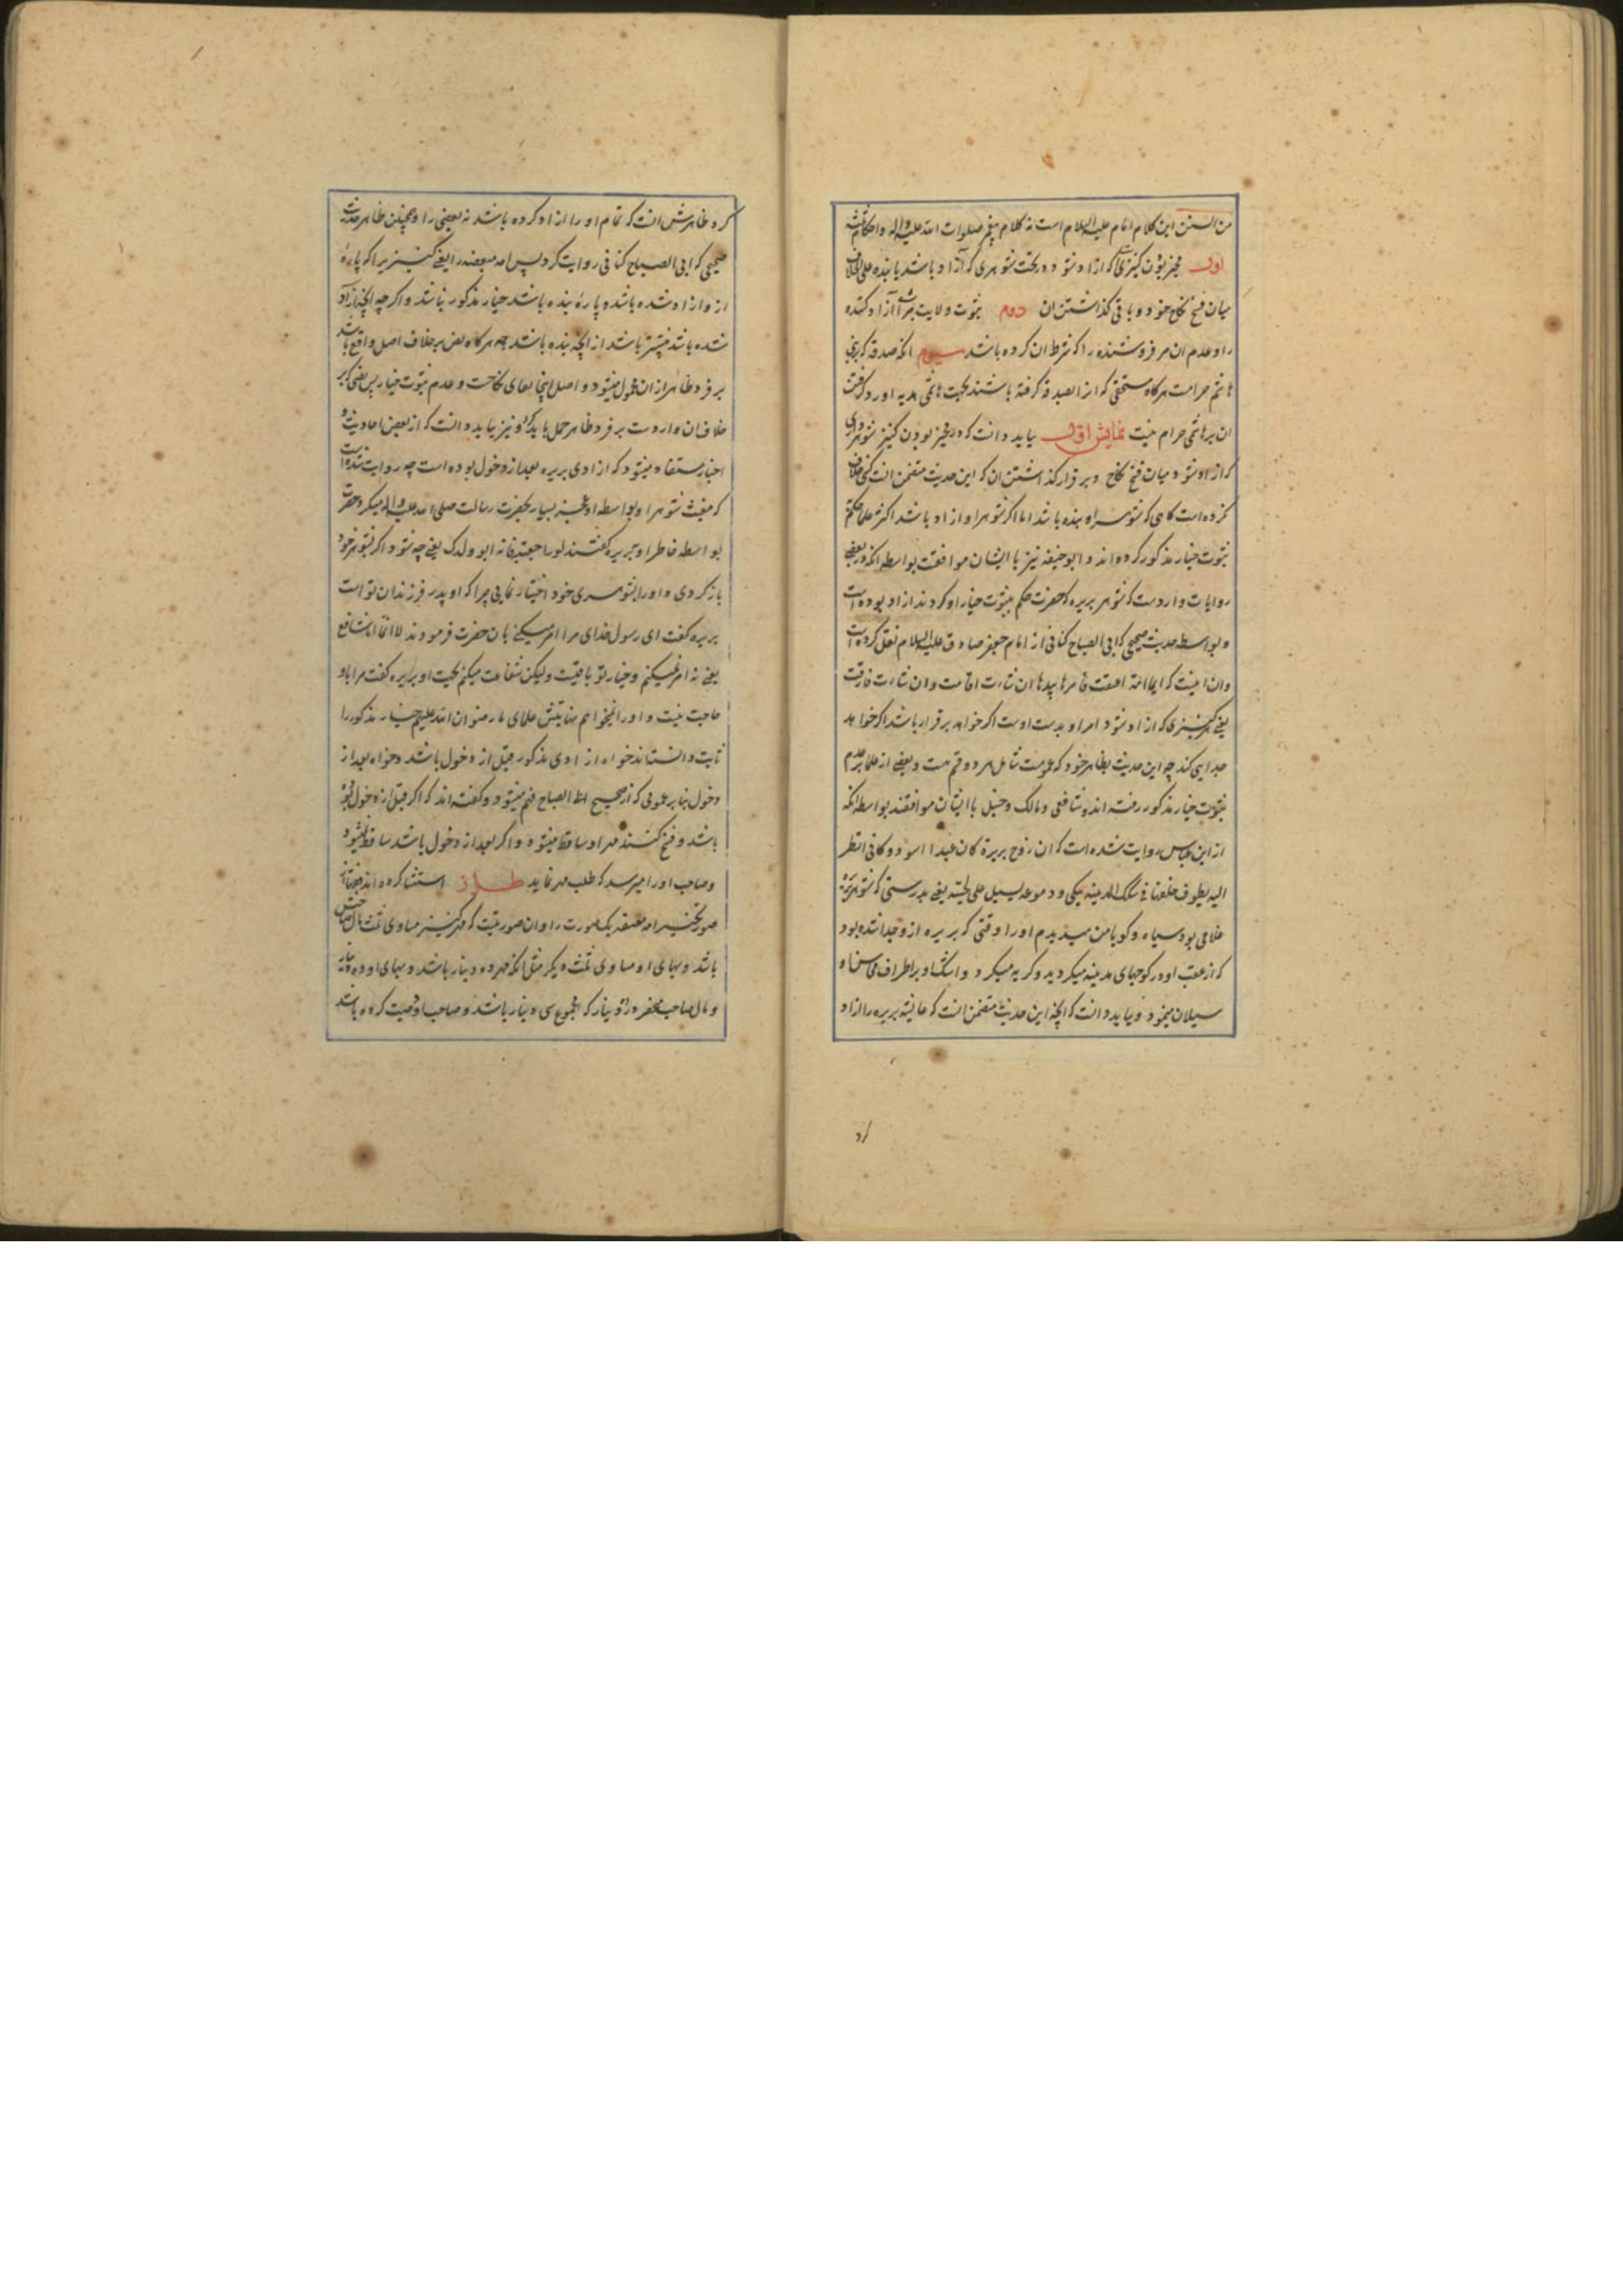 من السنن این کلام امام علیه السلام است نه کلام پیغمبر صلوات الله علیه واله واحکام ثلثه
اول مخیر بودن کنیزی که ازاد شود و در تحت شوهری که آزاد باشد یا بنده علی الخلاف
میان فسخ نکاح خود و باقی گذاشتن ان دوم ثبوت ولایت مر آزاد کننده
را و عدم ان مر فروشنده را که شرط ان کرده باشد سیوم انکه صدقه که بر بنی
هاشم حرامست هرگاه مستحقی که از انصدقه گرفته باشد بجهت هاشمی هدیه اورد گرفتن
ان بر هاشمی حرام نیست نمایش اول بباید دانست که در مخیر بودن کنیز شوهرداری
که ازاد شود میان فسخ نکاح و برقرار گذاشتن ان که این حدیث متضمن انست کسی خلاف
نکرده است کاهی که شوهر او بنده باشد اما اگر شوهر او ازاد باشد اکثر علما حکم
بثبوت خیار مذکور کرده اند و ابو حنیفه نیز با ایشان موافقت بواسطه انکه در بعضی
روایات واردست که شوهر بریره که حضرت حکم بثبوت خیار او کردند ازاد بوده است
و بواسطه حدیث صحیحی که ابی الصباح کنانی از امام جعفر صادق علیه السلام نقل کرده است
وان اینست که ایما امة اعتقت فامرها بیدها ان شاءت اقامت وان شاءت فارقت
یعنی هر کنیزی که ازاد شود امر او بدست اوست اگر خواهد برقرار باشد اگر خواهد
جدایی کند چه این حدیث بظاهر خود که عمومست شامل هر دو قسم هست و بعضی از علما بر عدم
ثبوت خیار مذکور رفته اند و شافعی و مالک و حنبل با ایشان موافقند بواسطه انکه
از ابن عباس روایت شده است که ان زوج بریرة کان عبدا اسود و کانی انظر
الیه یطوف خلفها فی سکک المدینه یبکی و دموعه تسیل علی لحیته یعنی بدرستی که شوهر بریره
غلامی بود سیاه و کویا من میدیدم او را وقتی که بریره از و جدا شده بود
که از عقب او در کوچهای مدینه میکردید و گریه میکرد و اشک او بر اطراف محاسن او
سیلان مینمود و بباید دانست که انچه این حدیث متضمن انست که عایشه بریره را ازاد
کرد ظاهرش انست که تمام او را ازاد کرده باشد نه بعضی را و همچنین ظاهر حدیث
صحیحی که ابی الصباح کنانی روایت کرد پس امه مبعضه را یعنی کنیزیرا که پارهٔ
از و ازاد شده باشد و پارهٔ بنده باشد خیار مذکور نباشد و اگر چه انچه ازاد
شده باشد بیشتر باشد از انچه بنده باشد چه هرگاه نص بر خلاف اصل واقع باشد
بر فرد ظاهر از ان محمول میشود و اصل اینجا بقای نکاحست و عدم ثبوت خیار پس نصی که بر
خلاف ان واردست بر فرد ظاهر حمل باید کرد و نیز بباید دانست که از بعضی احادیث و
اخبار مستفاد میشود که ازادی بریره بعد از دخول بوده است چه روایت شده است
که مغیث شوهر او بواسطه او بسیار بحضرت رسالت صلی الله علیه واله میکرد حضرت
بواسطه خاطر او ببریره گفتند لو راجعتیه فانه ابو ولدک یعنی چه شود اگر بشوهر خود
باز کردی و او را بشوهری خود اختیار نمایی چرا که او پدر فرزندان تو است
بریره کفت ای رسول خدای مرا امر میکنی بان حضرت فرمودند لا انما انا شافع
یعنی نه امر نمیکنم و خیار تو باقیست ولیکن شفاعت میکنم بجهت او بریره کفت مرا باو
حاجت نیست و او را نمیخواهم بنابرین علمای ما رضوان الله علیهم خیار مذکور را
ثابت دانسته اند خواه ازادی مذکور قبل از دخول باشد و خواه بعد از
دخول بنا بر عمومی که از صحیح ابی الصباح فهم میشود و کفته اند که اگر قبل از دخول
باشد و فسخ کنند مهر او ساقط میشود و اگر بعد از دخول باشد ساقط نمیشود
و صاحب او را میرسد که طلب مهر نماید طراز استثنا کرده اند فقها از
صور تخییر امه معتقه یک صورت را وان صورتیست که مهر کنیز مساوی ثلث مال صاحبش
باشد و بهای او مساوی ثلث دیگر مثل انکه مهر ده دینار باشد و بهای او ده دینار
و مال صاحب منحصر در ده دینار که مجموع سی دینار باشد و صاحب او وصیت کرده باشد